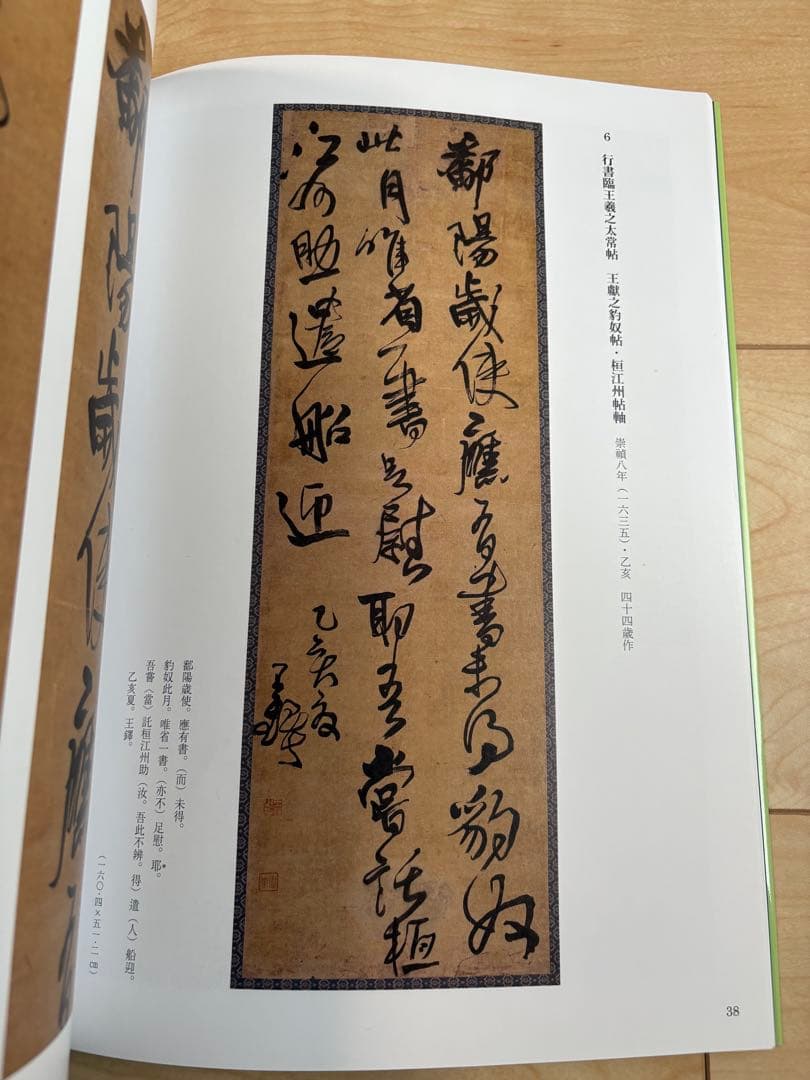 6 行書臨王羲之太常帖 王獻之豹奴帖・桓江州帖軸 崇禎八年（一六三五）・乙亥 四十四歳作
鄱陽歳使應有書未得豹奴
此月唯省一書足慰耶吾嘗託桓
江州助遣船迎 乙亥夏
王鐸
鄱陽歳使。應有書。（而）未得。
豹奴此月。唯省一書。（亦不）足慰。耶*。
吾嘗（當）託桓江州助（汝。吾此不辨。得）遣（人）船迎。
乙亥夏。王鐸。
（一六〇・四×五一・二㎝）
38